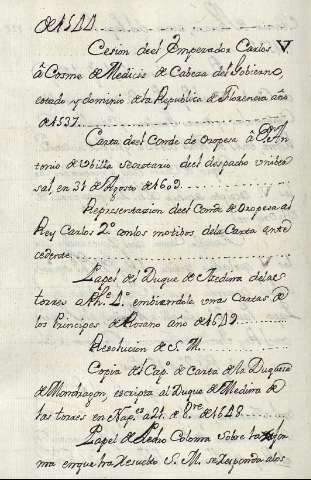 de 1544
Cesion de el Emperador Carlos V
â Cosme de Medicis de Cabeza del Gobierno,
estado y dominio de la Republica de Florencia año
de 1537.
Carta de el Conde de oropesa â Dn. An-
tonio de Ubilla secretario de el despacho univer
sal, en 31 de Agosto de 1609.
Representazion de el Conde de oropesa al
Rey Carlos 2º con los motibos de la Carta ante
cedente
Papel del Duque de Medina de las
torres a Phe. 4º embiandole una Cartas de
los Principes de Rosano año de 1649.
Resolucion de S. M.
Copia del Capº de Carta de la Duquesa
de Mondragon, escripta al Duque de Medina de
las torres en Napes. a 21. de 8bre. de 1648.
Papel de Pedro Coloma sobre la for
ma en que ha resuelto S. M. se responda a los